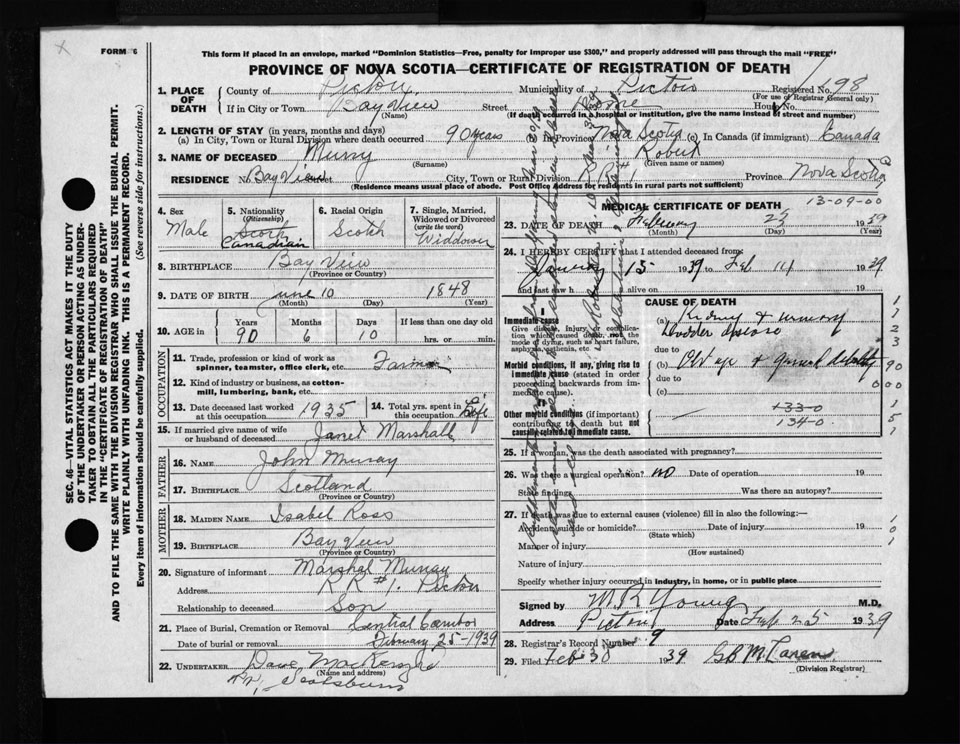 X
FORM 6
This form if placed in an envelope, marked "Dominion Statistics—Free, penalty for improper use $300," and properly addressed will pass through the mail "FREE"
PROVINCE OF NOVA SCOTIA—CERTIFICATE OF REGISTRATION OF DEATH
1. PLACE OF DEATH
County of Pictou Municipality of Pictou Registered No. 198
(For use of Registrar General only)
If in City or Town Bay View Street Home House No.
(Name) (If death occurred in a hospital or institution, give the name instead of street and number)
2. LENGTH OF STAY (in years, months and days)
(a) In City, Town or Rural Division where death occurred 90 years (b) In Province Nova Scotia (c) In Canada (if immigrant) Canada
3. NAME OF DECEASED Murry Robert
(Surname) (Given name or names)
RESIDENCE No. Bay View Street City, Town or Rural Division R R #1 Province Nova Scotia
(Residence means usual place of abode. Post Office Address for residents in rural parts not sufficient)
SEC. 46—VITAL STATISTICS ACT MAKES IT THE DUTY OF THE UNDERTAKER OR PERSON ACTING AS UNDERTAKER TO OBTAIN ALL THE PARTICULARS REQUIRED IN THE "CERTIFICATE OF REGISTRATION OF DEATH" AND TO FILE THE SAME WITH THE DIVISION REGISTRAR WHO SHALL ISSUE THE BURIAL PERMIT.
WRITE PLAINLY WITH UNFADING INK. THIS IS A PERMANENT RECORD.
Every item of information should be carefully supplied. (See reverse side for instructions.)
4. Sex
Male
5. Nationality (Citizenship)
Scotch
Canadian
6. Racial Origin
Scotch
7. Single, Married, Widowed or Divorced (write the word)
Widdower
8. BIRTHPLACE Bay View
(Province or Country)
9. DATE OF BIRTH June 10 1848
(Month) (Day) (Year)
10. AGE IN Years Months Days If less than one day old
90 6 10 hrs. or min.
OCCUPATION
11. Trade, profession or kind of work as spinner, teamster, office clerk, etc. Farmer
12. Kind of industry or business, as cotton-mill, lumbering, bank, etc.
13. Date deceased last worked at this occupation 1935
14. Total yrs. spent in this occupation Life
15. If married give name of wife or husband of deceased Janet Marshall
FATHER
16. NAME John Murray
17. BIRTHPLACE Scotland
(Province or Country)
MOTHER
18. MAIDEN NAME Isabel Ross
19. BIRTHPLACE Bay View
(Province or Country)
20. Signature of informant Marshal Murray
Address R R #1. Pictou
Relationship to deceased Son
21. Place of Burial, Cremation or Removal Central Caribou
Date of burial or removal February 25-1939
22. UNDERTAKER Dave MacKenzie
(Name and address)
Scotsburn
MEDICAL CERTIFICATE OF DEATH
13-09-00
23. DATE OF DEATH February 23 1939
(Month) (Day) (Year)
24. I HEREBY CERTIFY that I attended deceased from:
January 15 1939 to Feb 1939
and last saw h alive on 19
CAUSE OF DEATH
Immediate cause
Give disease, injury or complication which caused death, not the mode of dying, such as heart failure, asphyxia, asthenia, etc.
(a) Kidney & urinary bladder disease
due to
Morbid conditions, if any, giving rise to immediate cause (stated in order proceeding backwards from immediate cause).
(b) Old age & general debility
due to
(c)
Other morbid conditions (if important) contributing to death but not causally related to immediate cause.
133-0
134-0
1
7
2
3
90
000
1
5
1
25. If a woman, was the death associated with pregnancy?
26. Was there a surgical operation? no Date of operation 19
State findings Was there an autopsy?
27. If death was due to external causes (violence) fill in also the following:—
Accident, suicide or homicide? Date of injury 19
(State which)
Manner of injury
(How sustained)
Nature of injury
Specify whether injury occurred in industry, in home, or in public place
1
0
1
Signed by M. R. Young M.D.
Address Pictou Date Feb 25 1939
28. Registrar's Record Number 9
29. Filed Feb 30 1939
(Division Registrar)